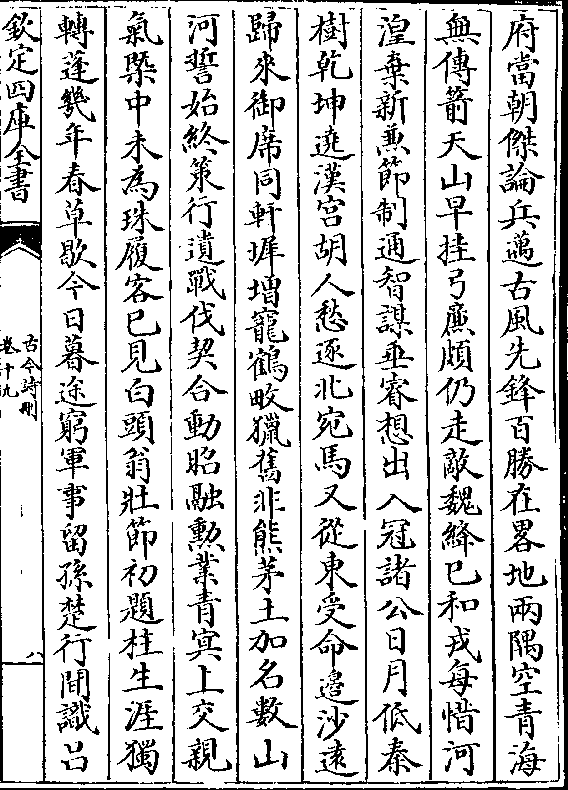 府當朝傑論兵邁古風先鋒百勝在畧地兩隅空青海
無傳箭天山早挂弓廉頗仍走敵魏絳已和戎每惜河
湟棄新兼節制通智謀垂睿想出入冠諸公日月低秦
樹乾坤遶漢宮胡人愁逐北宛馬又從東受命邉沙遠
歸來御席同軒墀増寵鶴畋獵舊非熊茅土加名數山
河誓始終策行遺戰伐契合動昭融勲業青冥上交親
氣槩中未為珠履客已見白頭翁壯節初題柱生涯獨
轉蓬幾年春草歇今日暮途窮軍事留孫楚行間識吕
欽定四庫全書
古今詩刪
卷十九
八